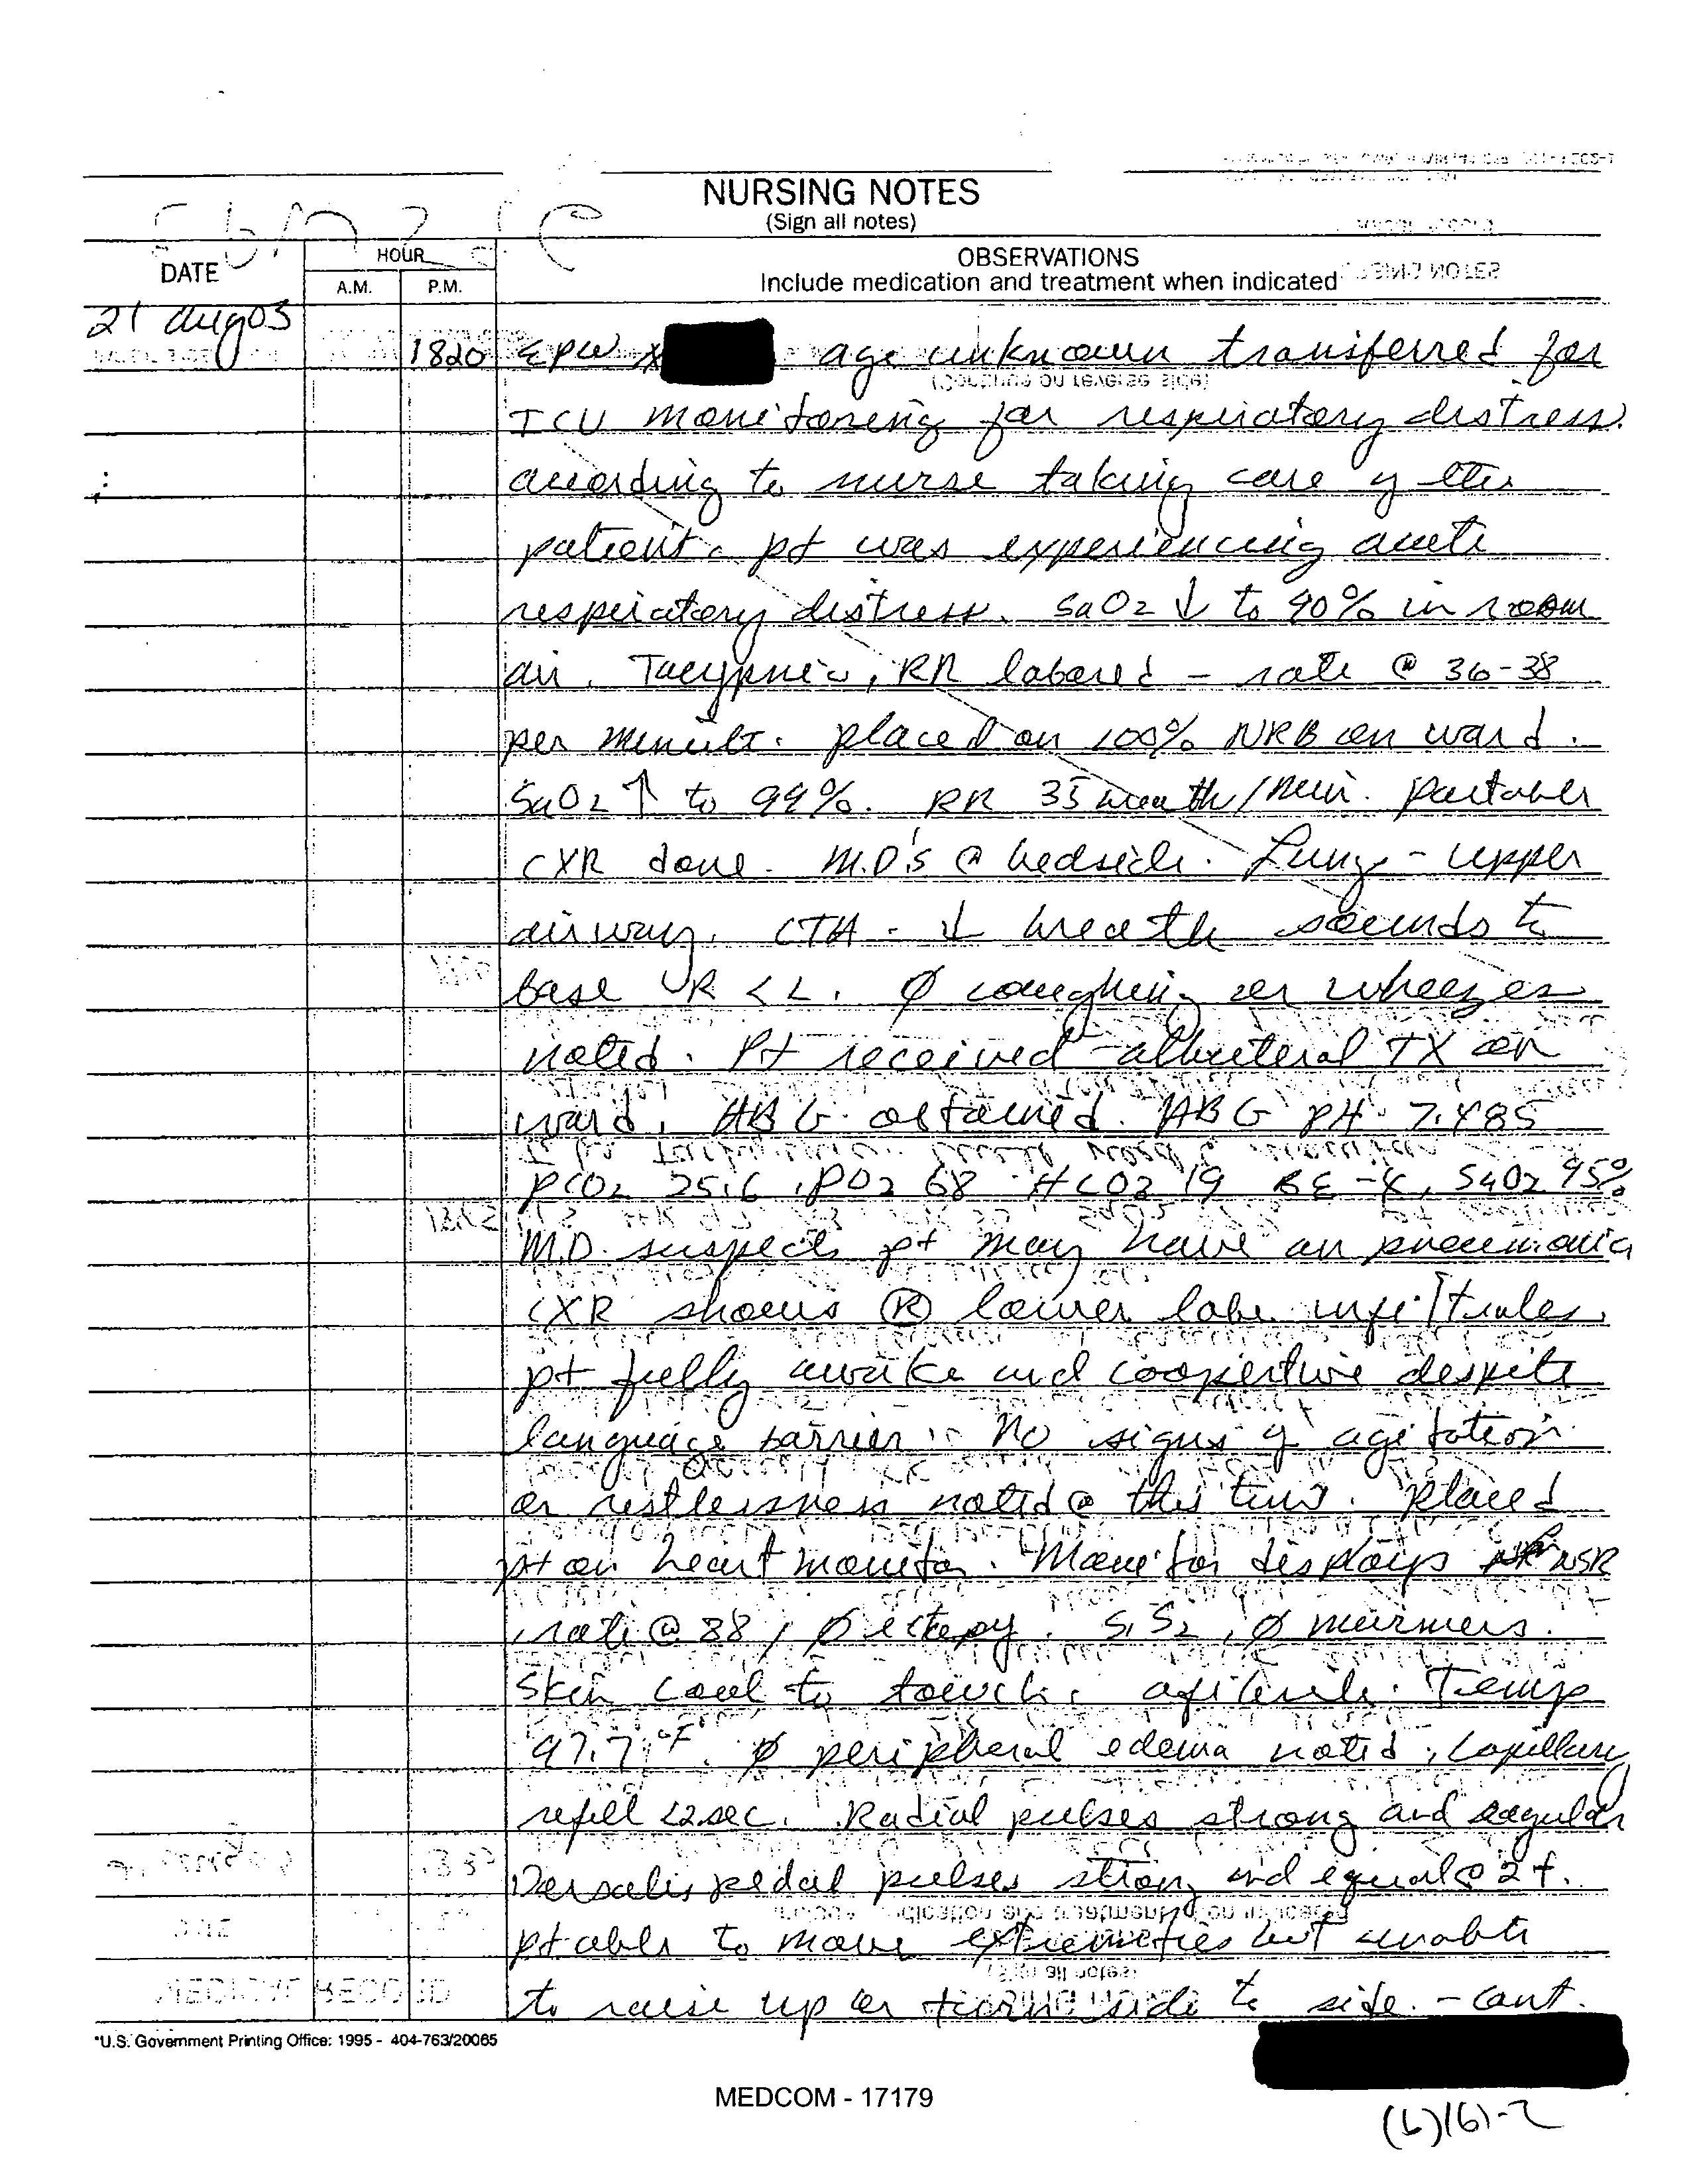 NURSING NOTES
(Sign all notes)
DATE
HOUR
A.M.
P.M.
OBSERVATIONS
Include medication and treatment when indicated
21 Aug 03
1820 EPW age unknown transferred for
ICU monitoring for respiratory distress.
according to nurse taking care of the
patient. pt was experiencing acute
respiratory distress. SaO2 ↓ to 90% in room
air. Tacypnic, RR labored - rate @ 36-38
per minute. placed on 100% NRB on ward.
SaO2 ↑ to 99%. RR 35 breath/min. Portable
CXR done. M.D.'s @ bedside. Lungs - upper
airway. CTA - ↓ breath sounds to
base R < L. Ø coughing or wheezes
noted. Pt received albuterol TX on
ward. ABG obtained. ABG pH 7.485
PCO2 25.6, PO2 68 HCO3 19 BE -4, SaO2 95%
M.D. suspects pt may have an pneumonia
CXR shows Ⓡ lower lobe infiltrates.
pt fully awake and cooperative despite
language barrier. No signs of agitation
or restlessness noted @ this time. Placed
pt on heart monitor. Monitor displays NSR
rate @ 88, Ø ectopy. S1S2, Ø murmers.
Skin cool to touch. afibrile. Temp
97.7°F. Ø peripheral edema noted, Capillary
refill <2 sec. Radial pulses strong and regular
Dorsalis pedal pulses strong and equal @ 2+.
pt able to move extremeties but unable
to raise up or turn side to side. - cont.
*U.S. Government Printing Office: 1995 - 404-763/20065
MEDCOM - 17179
(b)(6)-2